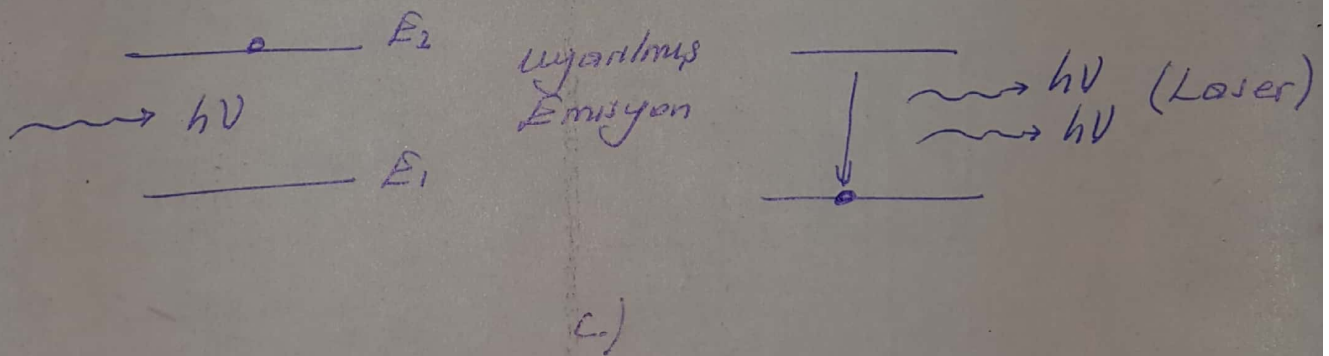 E₂
hν
E₁
Uyarılmış
Emisyon
hν (Laser)
hν
c.)